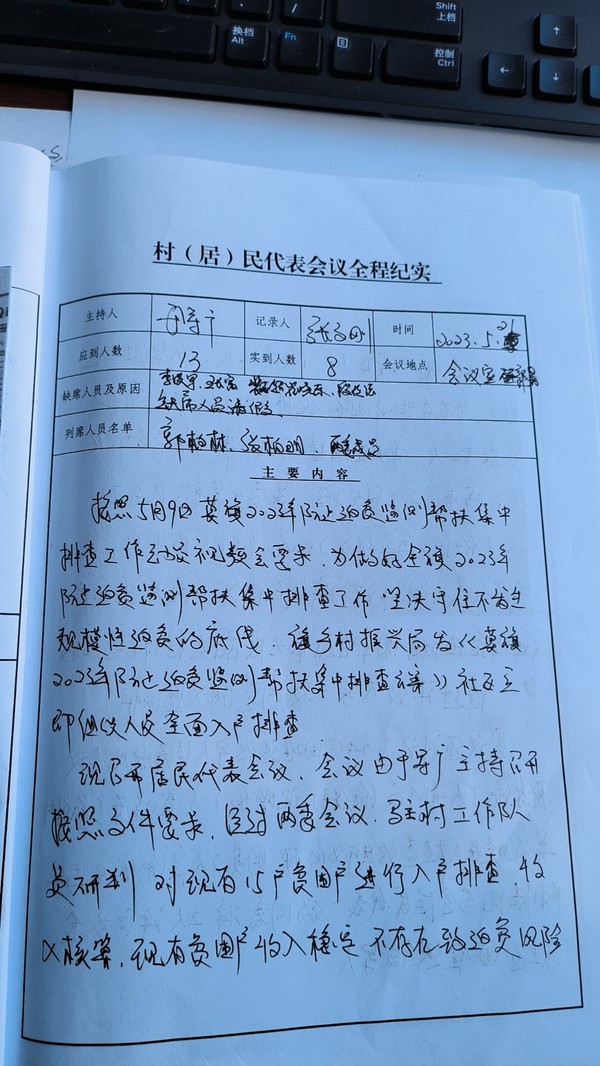 Shift
上档
换档
Alt
Fn
控制
Ctrl
村（居）民代表会议全程纪实
主持人 记录人 时间 2023.5.21
应到人数 13 实到人数 8 会议地点 会议室
缺席人员及原因
缺席人员请假
列席人员名单 郭柏林、张柏明、两委成员
主要内容
按照5月9日莫旗2023年防止返贫监测帮扶集中
排查工作动员视频会要求，为做好全旗2023年
防止返贫监测帮扶集中排查工作 坚决守住不发生
规模性返贫的底线，旗乡村振兴局发《莫旗
2023年防止返贫监测帮扶集中排查方案》社区立
即组织人员全面入户排查
现召开居民代表会议，会议由于景广主持召开
按照文件要求，经过两委会议、驻村工作队
员研判 对现有15户贫困户进行入户排查，收
入核算，现有贫困户收入稳定 不存在致返贫风险